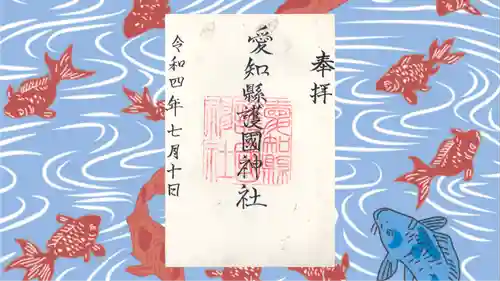 奉拝
愛知縣護國神社
令和四年七月十日
愛知縣
護國神
社